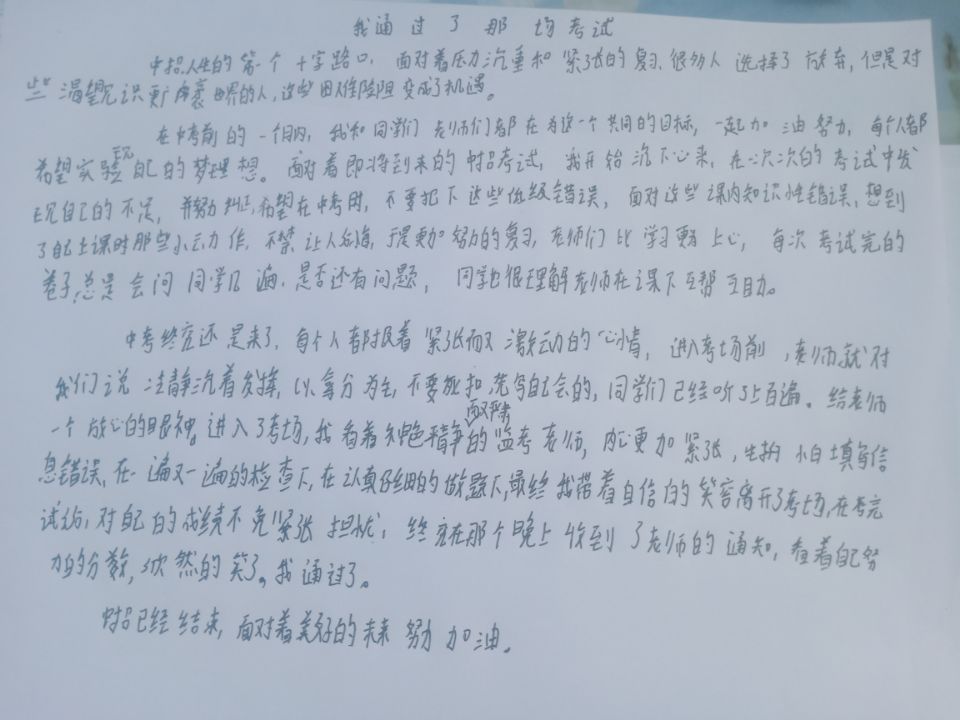 我通过了那均考试
中招人生的第一个十字路口，面对着压力沉重和紧张的复习，很多人选择了放弃，但是对
些渴望知识更广袤世界的人，这些困难险阻变成了机遇。
在中考前的一个月内，我和同学们老师们都在为这一个共同的目标，一起加油努力，每个人都
希望实现自己的梦理想。面对着即将到来的中招考试，我开始沉下心来，在一次次的考试中发
现自己的不足，并努力纠正，希望在中考时，不要犯下这些低级错误，面对这些课内知识性错误，想到
了自己上课时那些小动作，不禁让人后悔，于是更加努力的复习，老师们比学习更上心，每次考试完的
卷子，总是会问同学几遍，是否还有问题，同学也很理解老师在课下互帮互助。
中考终究还是来了，每个人都报着紧张而又激动的心情，进入考场前，老师就对
我们说冷静沉着发挥，以拿分为主，不要死扣，先写自己会的，同学们已经听了上百遍。给老师
一个放心的眼神，进入了考场，我看着和色平静而又严肃的监考老师，内心更加紧张，生怕小白填写信
息错误，在一遍又一遍的检查下，在认真仔细的做题下，最终我带着自信的笑容离开了考场，在考完
试后，对自己的成绩不免紧张担忧，终究在那个晚上收到了老师的通知，看着自己努
力的分数，欣然的笑了，我通过了。
中招已经结束，面对着美好的未来努力加油。